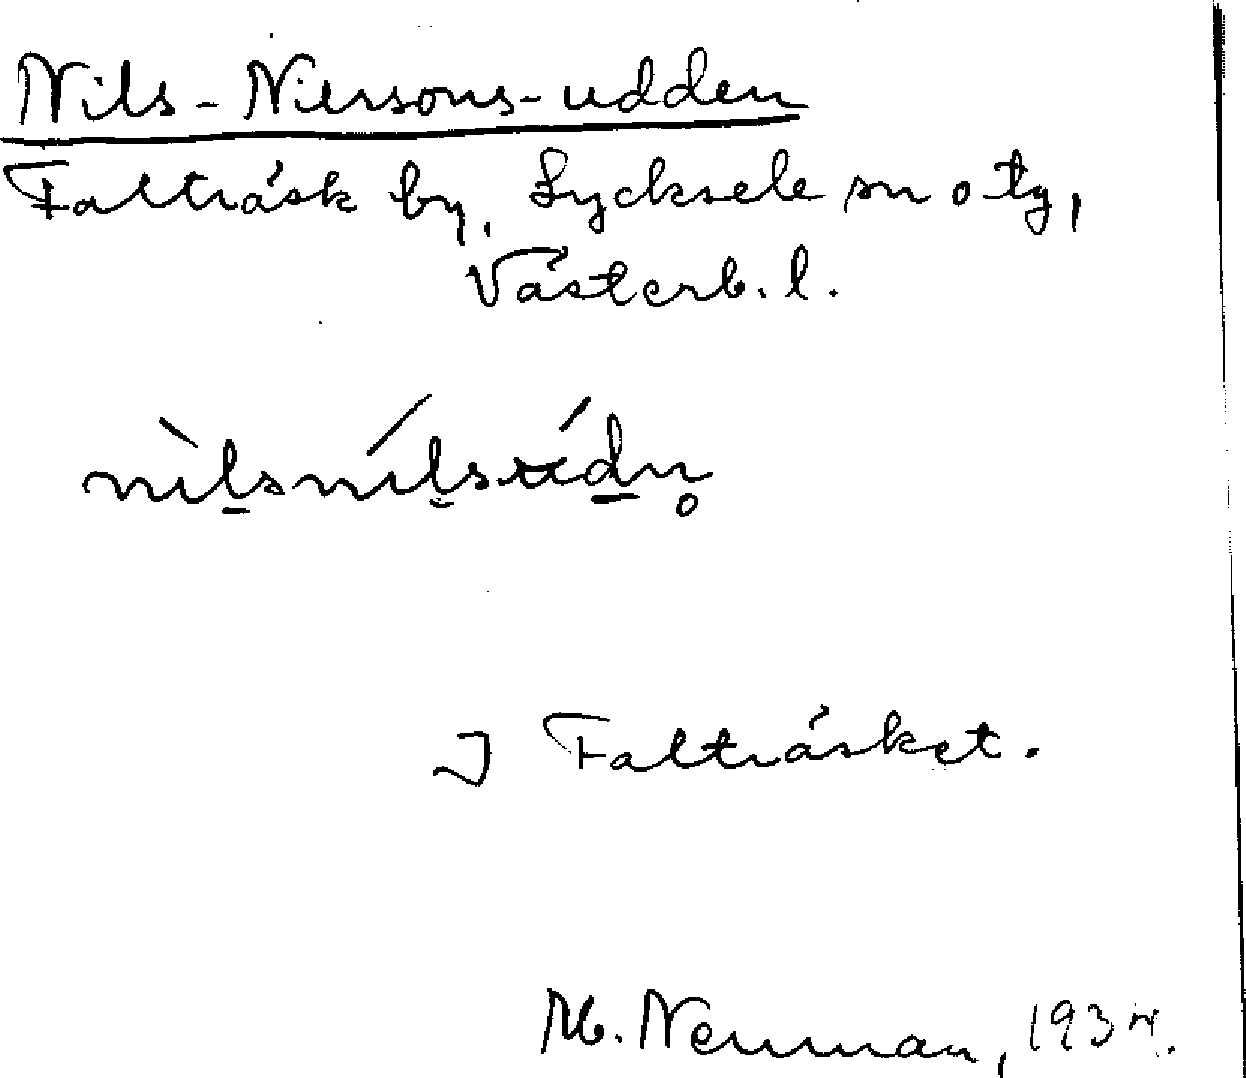 Nils-Nilssons-udden
Falträsk by, Lycksele sn o tg,
Västerb. l.
nìlsnílsúdn̥
I Falträsket.
M. Neuman, 1937.